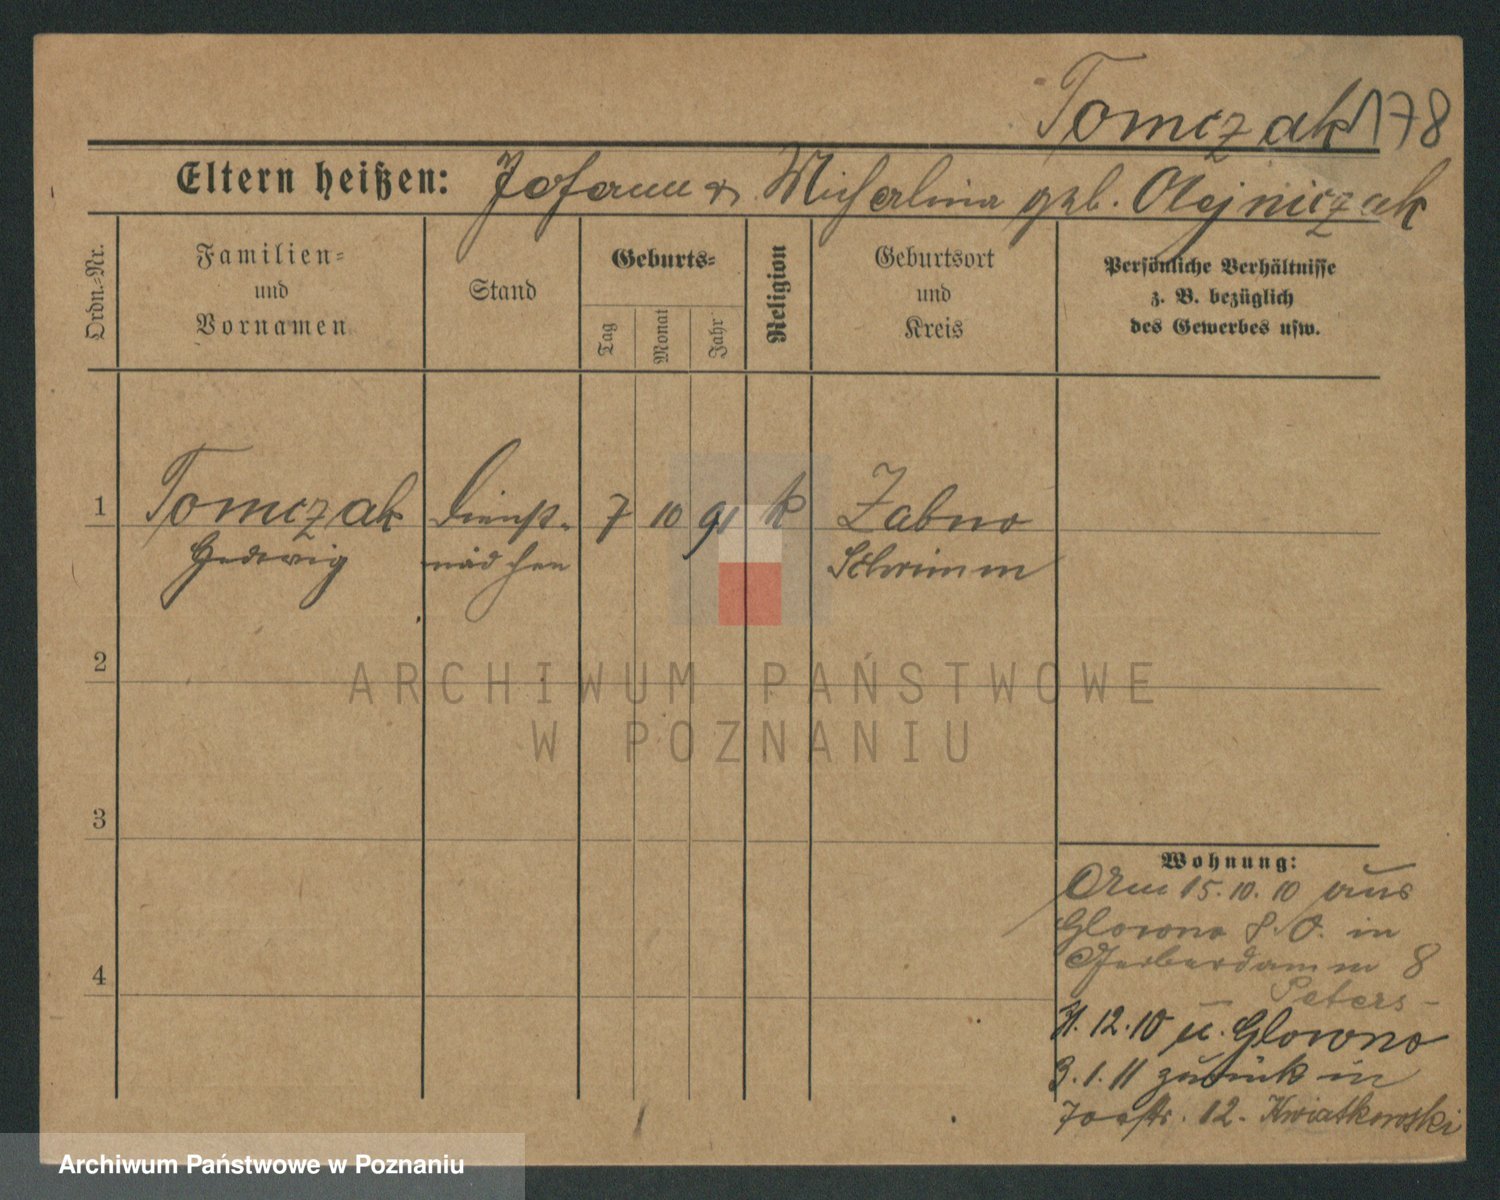 Tomczak 178
Eltern heißen: Johann u. Micharlina geb. Olejniczak
Ordn.-Nr.
Familien-
und
Vornamen
Stand
Geburts-
Tag
Monat
Jahr
Religion
Geburtsort
und
Kreis
Persönliche Verhältnisse
z. B. bezüglich
des Gewerbes usw.
1 Tomczak Dienst- 7 10 91 k Zabno
Hedwig mädchen Schrimm
2
3
4
ARCHIWUM PAŃSTWOWE
W POZNANIU
Wohnung:
Am 15.10.10 aus
Glowno P. O. in
Gerberdamm 8
Peters-
12.10 u. Glowno
3.1.11 zurück in
12. Kwiatkowski
Archiwum Państwowe w Poznaniu